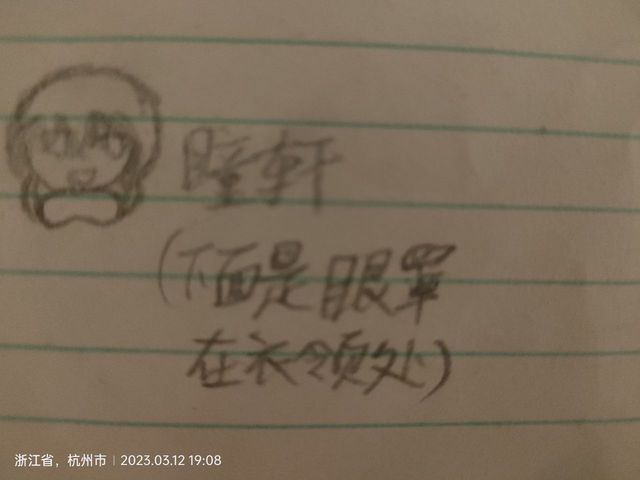 瞳轩
(下面是眼罩
在衣领处)
浙江省，杭州市 | 2023.03.12 19:08